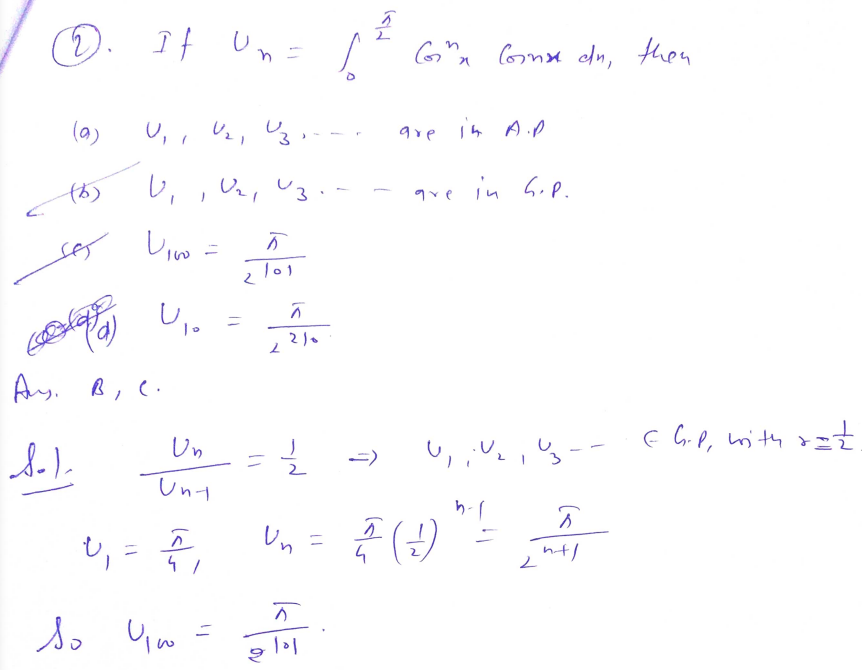 (2). If Uₙ = ∫₀^(π/2) Cosⁿx Cosnx dx, then
(a) U₁, U₂, U₃, ---- are in A.P
(b) U₁, U₂, U₃, -- - are in G.P.
(c) U₁₀₀ = π/2^101
(d) U₁₀ = π/2^210
Ans. B, C.
Sol. Uₙ/Uₙ₋₁ = 1/2 => U₁, U₂, U₃ -- ∈ G.P, with r = 1/2
U₁ = π/4, Uₙ = π/4 (1/2)^(n-1) = π/2^(n+1)
So U₁₀₀ = π/2^101.